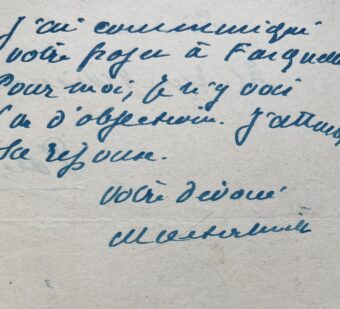 J'ai communiqué
votre projet à
Pour moi, je n'y vois
pas d'objection. J'attends
sa réponse.
votre dévoué